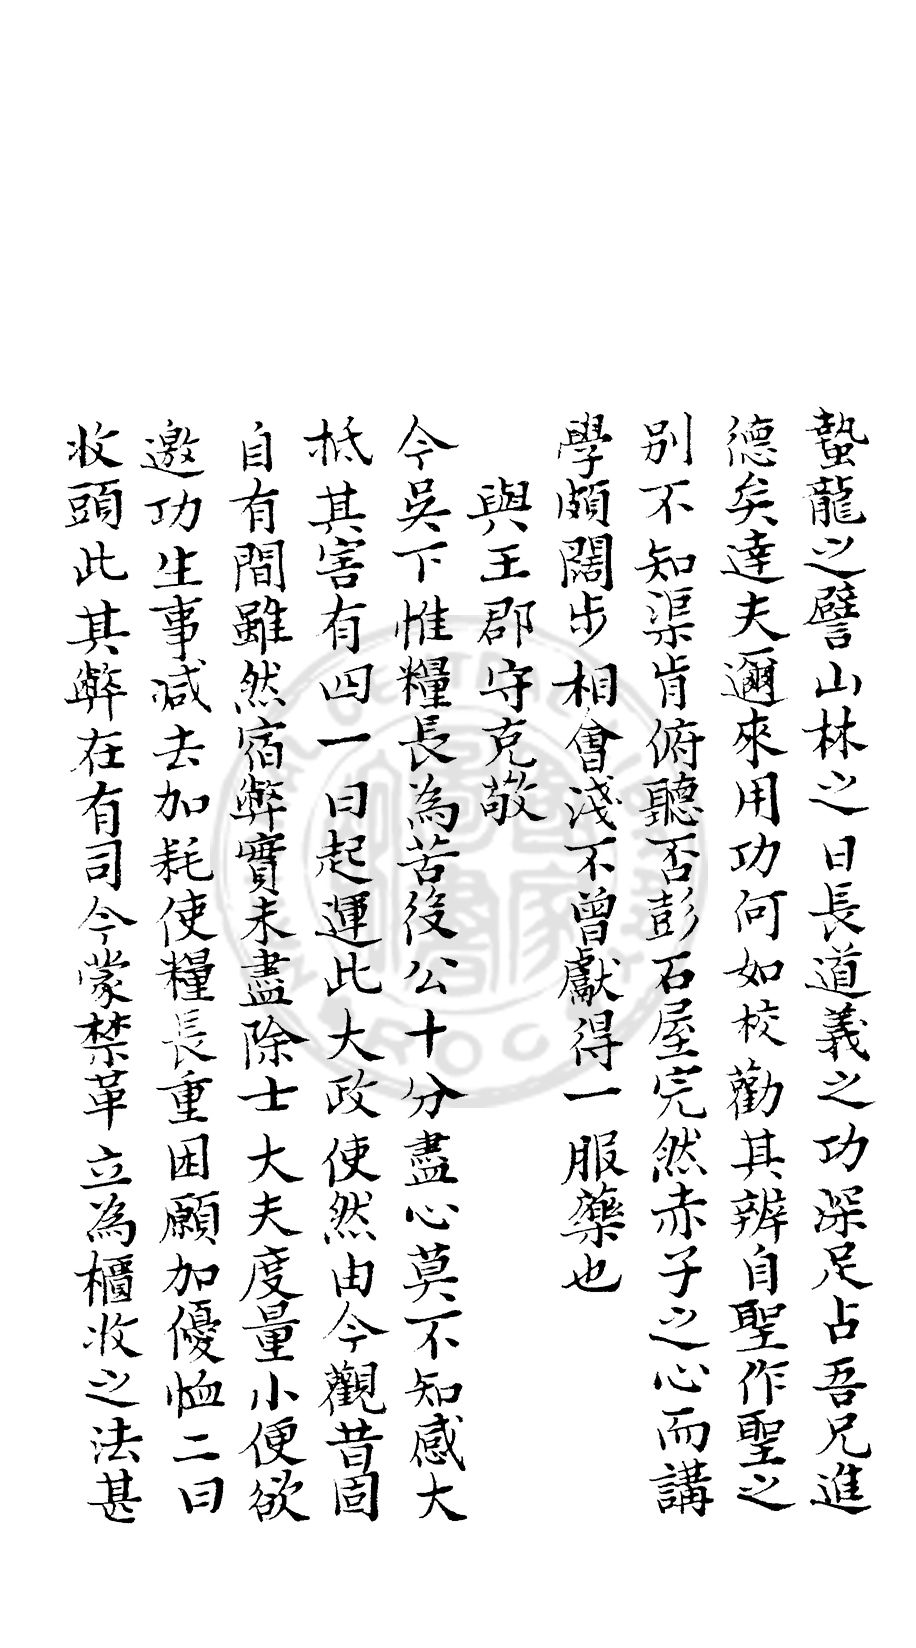 蟄龍之譬山林之日長道義之功深足占吾兄進
德矣達夫邇來用功何如校勸其辨自聖作聖之
別不知渠肯俯聽否彭石屋完然赤子之心而講
學頗闊步相會淺不曾獻得一服藥也
與王郡守克敬
今吳下惟糧長為苦役公十分盡心莫不知感大
抵其害有四一曰起運此大政使然由今觀昔固
自有間雖然宿弊實未盡除士大夫度量小便欲
邀功生事减去加耗使糧長重困願加優恤二曰
收頭此其弊在有司今蒙禁革立為櫃收之法甚